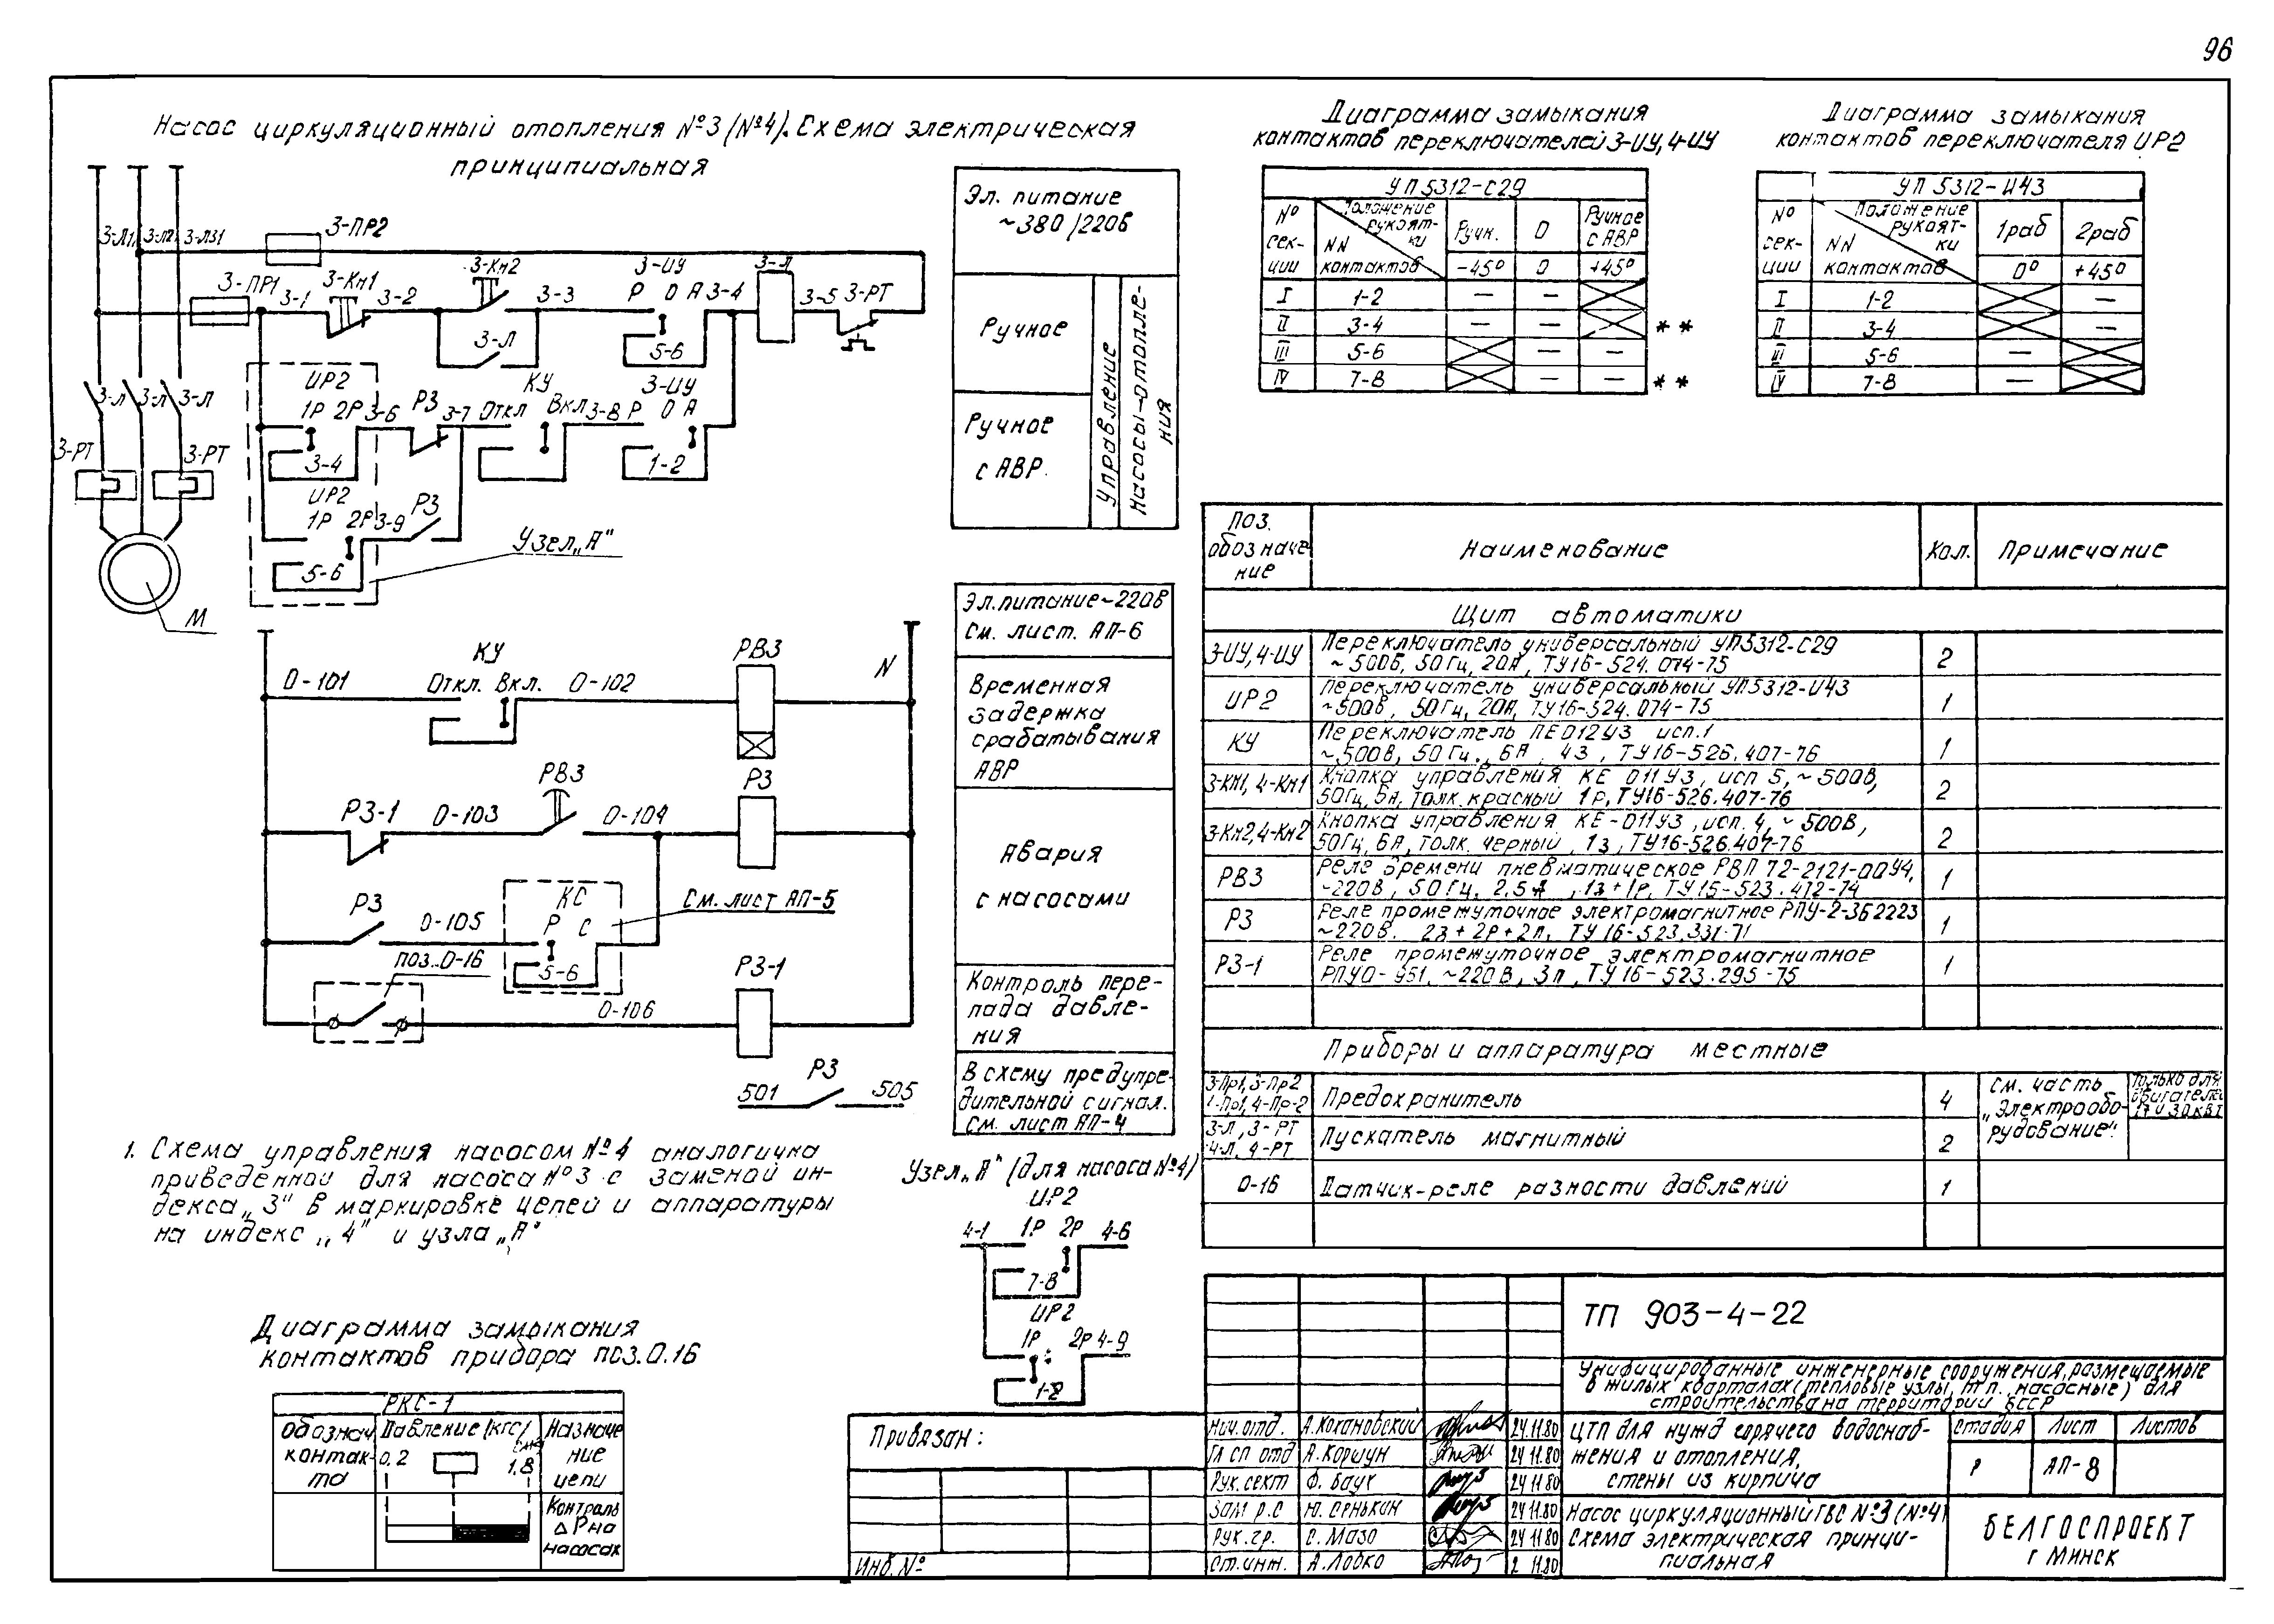 96
Насос циркуляционный отопления №3 (№4). Схема электрическая
принципиальная
3-Л1 3-Л2 3-Л31
3-ПР2
3-ПР1
3-1
3-Кн1
3-2
3-Кн2
3-Л
3-3
3-ИУ
Р О А 3-4
5-6
3-Л
3-5 3-РТ
3-Л 3-Л 3-Л
3-РТ 3-РТ
М
ИР2
1Р 2Р 3-6
3-4
Р3
3-7 Откл
КУ
Вкл 3-8
3-ИУ
Р О А
1-2
ИР2
1Р 2Р 3-9
5-6
Р3
Узел „А"
Эл. питание
~380/220В
Ручное
Ручное
с АВР.
Управление
Насосы-отопле-
ния
О-101
КУ
Откл. Вкл.
О-102
РВ3
N
Р3-1
О-103
РВ3
О-104
Р3
Р3
О-105
КС
Р С
5-6
См. лист АП-5
поз. О-16
О-106
Р3-1
501
Р3
505
Эл.питание ~220В
См. лист. АП-6
Временная
задержка
срабатывания
АВР
Авария
с насосами
Контроль пере-
пада давле-
ния
В схему предупре-
дительной сигнал.
См. лист АП-4
1. Схема управления насосом №4 аналогична
приведенной для насоса №3 с заменой ин-
декса „3" в маркировке цепей и аппаратуры
на индекс „4" и узла „А"
Узел „А" (для насоса №4)
ИР2
4-1 1Р 2Р 4-6
7-8
ИР2
1Р 2Р 4-9
1-2
Диаграмма замыкания
контактов прибора поз.О.16
РКС-1
Обознач
контак-
та
Давление (кгс/
0,2 1,8
Назначе
ние
цепи
Контроль
ΔР на
насосах
Диаграмма замыкания
контактов переключателей 3-ИУ, 4-ИУ
УП5312-С29
№
сек-
ции
Положение
рукоят-
ки
NN
контактов
Ручн. О Ручное
с АВР
-45° 0 +45°
I 1-2 — —
II 3-4 — — **
III 5-6 — —
IV 7-8 — — **
Диаграмма замыкания
контактов переключателя ИР2
УП 5312-И43
№
сек-
ции
Положение
рукоят-
ки
NN
контактов
1раб 2раб
0° +45°
I 1-2 —
II 3-4 —
III 5-6 —
IV 7-8 —
Поз.
обозначе
ние
Наименование
Кол.
Примечание
Щит автоматики
3-ИУ, 4-ИУ Переключатель универсальный УП5312-С29
~500В, 50Гц, 20А, ТУ16-524.074-75 2
ИР2 Переключатель универсальный УП5312-И43
~500В, 50Гц, 20А, ТУ16-524.074-75 1
КУ Переключатель ПЕ012У3 исп.1
~500В, 50Гц, 6А, 43, ТУ16-526.407-76 1
3-Кн1, 4-Кн1 Кнопка управления КЕ 011У3, исп 5, ~500В,
50Гц, 6А, толк. красный 1р, ТУ16-526.407-76 2
3-Кн2, 4-Кн2 Кнопка управления КЕ-011У3, исп. 4, ~500В,
50Гц, 6А, толк. черный, 1з, ТУ16-526.407-76 2
РВ3 Реле времени пневматическое РВП 72-2121-00У4,
~220В, 50Гц, 2.5А, 1з+1р, ТУ16-523.472-74 1
Р3 Реле промежуточное электромагнитное РПУ-2-362223
~220В. 2з+2р+2п, ТУ16-523.331-71 1
Р3-1 Реле промежуточное электромагнитное
РПУ0-951, ~220В, 3п, ТУ16-523.295-75 1
Приборы и аппаратура местные
3-Пр1, 3-Пр2
4-Пр1, 4-Пр-2 Предохранитель 4
3-Л, 3-РТ
4-Л, 4-РТ Пускатель магнитный 2
см. часть
„Электрообо-
рудование".
только для
двигателей
17 и 30 кВт
О-16 Датчик-реле разности давлений 1
ТП 903-4-22
Унифицированные инженерные сооружения, размещаемые
в жилых кварталах (тепловые узлы, т п., насосные) для
строительства на территории БССР
Нач.отд. А.Кохановский 24.11.80
Гл сп отд А.Коршун 24 11.80
Рук. сект Ф. Баук 24 11.80
Зам р.с 24 11.80
Рук. гр. С. Мазо 24 11.80
Ст. инж. А. Лобко 2 11.80
ЦТП для нужд горячего водоснаб-
жения и отопления,
стены из кирпича
стадия Лист Листов
Р АП-8
Насос циркуляционный ГВС №3 (№4)
Схема электрическая принци-
пиальная
БЕЛГОСПРОЕКТ
г Минск
Привязан:
Инв. №